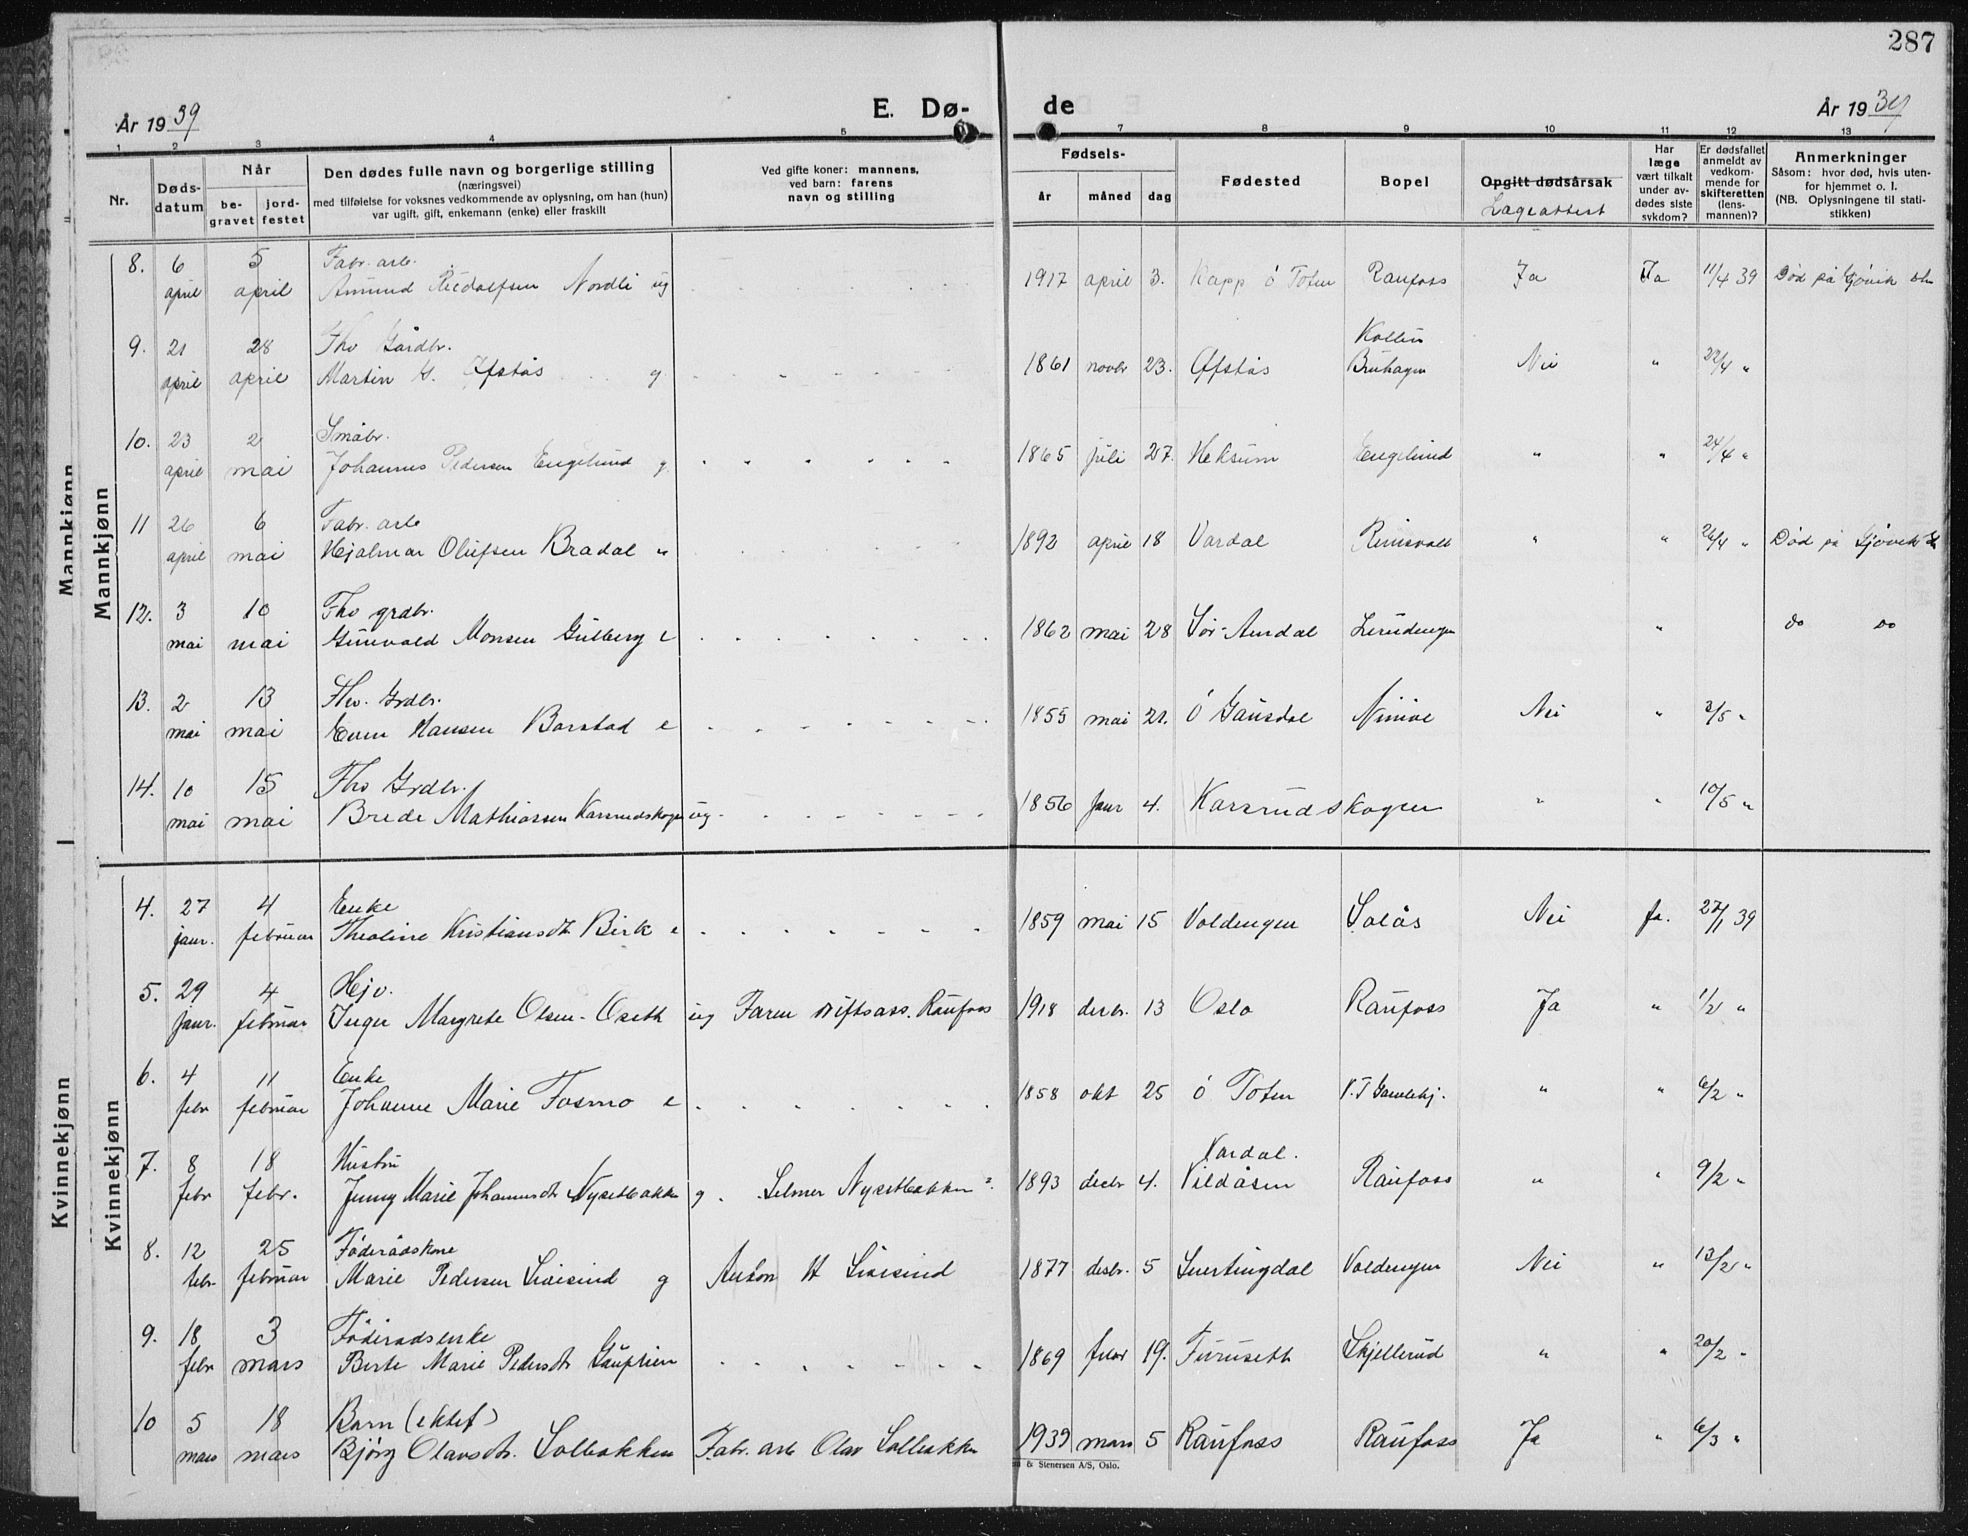 287
År 1939
E. Dø-
de
År 1939
1 2 3 4 5 7 8 9 10 11 12 13
Nr.
Døds-
datum
Når
be-
gravet
jord-
festet
Den dødes fulle navn og borgerlige stilling
(næringsvei)
med tilføielse for voksnes vedkommende av oplysning, om han (hun)
var ugift, gift, enkemann (enke) eller fraskilt
Ved gifte koner: mannens,
ved barn: farens
navn og stilling
Fødsels-
år måned dag
Fødested
Bopel
Opgitt dødsårsak
Lægeattest
Har
læge
vært tilkalt
under av-
dødes siste
sykdom?
Er dødsfallet
anmeldt av
vedkom-
mende for
skifteretten
(lens-
mannen)?
Anmerkninger
Såsom: hvor død, hvis uten-
for hjemmet o. l.
(NB. Oplysningene til stati-
stikken)
Mannkjønn
Mannkjønn
8. 6 5 Fabr. arb.
april april Amund Rudolfsen Nordli ug 1917 april 3. Kapp ö Toten Raufoss Ja Ja 11/4 39 Död på Gjövik
9. 21 28 Fhv Gårdbr. Kollin
april april Martin G. Öfstås g 1861 novbr 23. Öfstås Bruhagen Nei " 22/4 "
10. 23 2 Småbr.
april mai Johannes Pedersen Engelund g 1865 juli 27. Heksum Engelund " " 24/4 "
11 26 6 Fabr. arb
april mai Hjalmar Olufsen Bradal " 1892 april 18 Vardal Rinsvolt " " 26/4 " Död på Gjövik
12. 3 10 Fhv grdbr.
mai mai Gunvald Monsen Gulberg e 1862 mai 28 Sör-Aurdal Lerudengen " do do
13. 2 13 Fhv. Grdbr.
mai mai Even Hansen Borstad e 1855 mai 21. ö Gausdal Ninive Nei " 2/5 "
14. 10 15 Fhv Grdbr.
mai mai Brede Mathiassen Karsrudskogen ug 1856 janr 4. Karsrudskogen " " 10/5 "
Kvinnekjønn
Kvinnekjønn
4. 27 4 Enke
janr. februar Theoline Kristiansdt Birk e 1859 mai 15 Voldengen Solås Nei ja. 27/1 39
5. 29 4 Hjv.
janr. februar Inger Margrete Olsen-Oseth ug Faren driftsass. Raufoss 1918 desbr. 13 Oslo Raufoss Ja " 1/2 "
6. 4 11 Enke
febr februar Johanne Marie Fosmo e 1858 okt 25 ö Toten V.T Gamlehj. " " 6/2 "
7. 8 18 Hustru Vardal.
febr febr. Jenny Marie Johannesdt Nysetbakken g. Selmer Nysetbakken 1893 desbr 4. Vildåsen Raufoss " " 9/2 "
8. 12 25 Föderådskone
febr. februar Marie Pedersen Sivesind g Anton H Sivesind 1877 desbr. 5 Snertingdal Voldengen Nei " 13/2 "
9. 18 3 Föderadsenke
febr mars Berte Marie Pedersdt Gauplien 1869 febr 19. Furuseth Skjellerud " " 20/2 "
10 5 18 Barn (ektef)
mars mars Bjørg Olavsdt. Solbakken Fabr. arb Olav Solbakken 1939 mars 5 Raufoss Raufoss Ja " 6/3 "
& Stenersen A/S, Oslo.